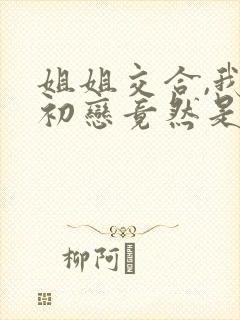 姐姐交合,我
初戀竟然是
柳阿